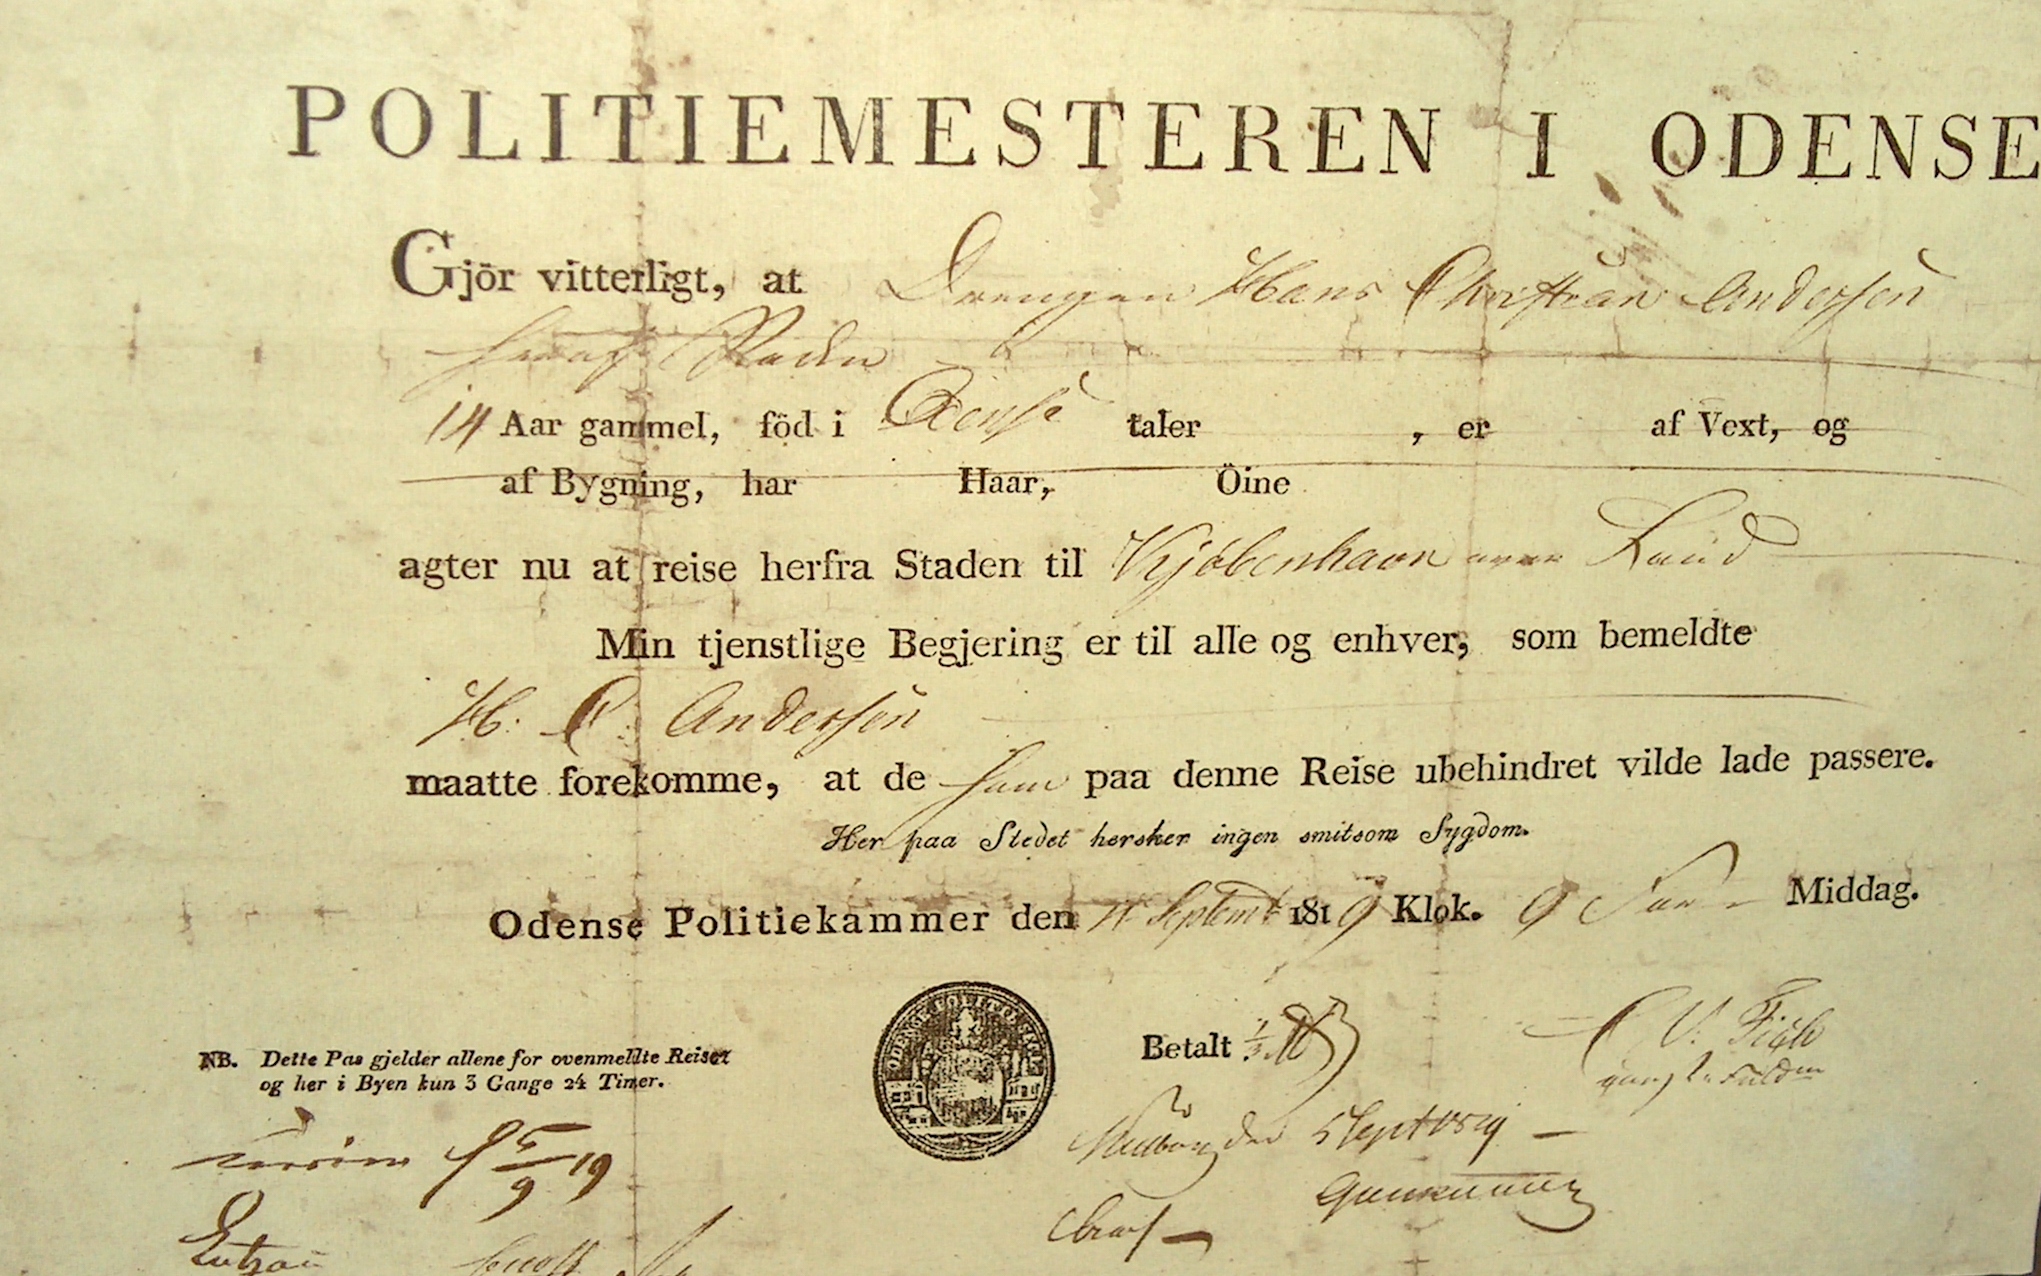 POLITIEMESTEREN I ODENSE
Gjör vitterligt, at Drengen Hans Christian Andersen
heraf Staden
14 Aar gammel, föd i Odense taler , er af Vext, og
af Bygning, har Haar, Öine
agter nu at reise herfra Staden til Kjöbenhavn over Land
Min tjenstlige Begjering er til alle og enhver, som bemeldte
H. C. Andersen
maatte forekomme, at de ham paa denne Reise ubehindret vilde lade passere.
Her paa Stedet hersker ingen smitsom Sygdom.
Odense Politiekammer den 4 Septembr 1819 Klok. 9 For- Middag.
ODENSE POLITIE
Betalt
NB. Dette Pas gjelder allene for ovenmeldte Reiser
og her i Byen kun 3 Gange 24 Timer.
Nyborg den 5 Sept 1819
5/9 19